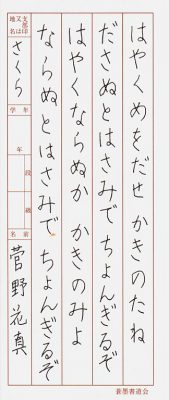 はやくめをだせ かきのたね
ださぬとはさみで ちょんぎるぞ
はやくならぬか かきのみよ
ならぬとはさみで ちょんぎるぞ
支部印又は地名
さくら
学年
年
段
級
名前
菅野花真
蒼墨書道会